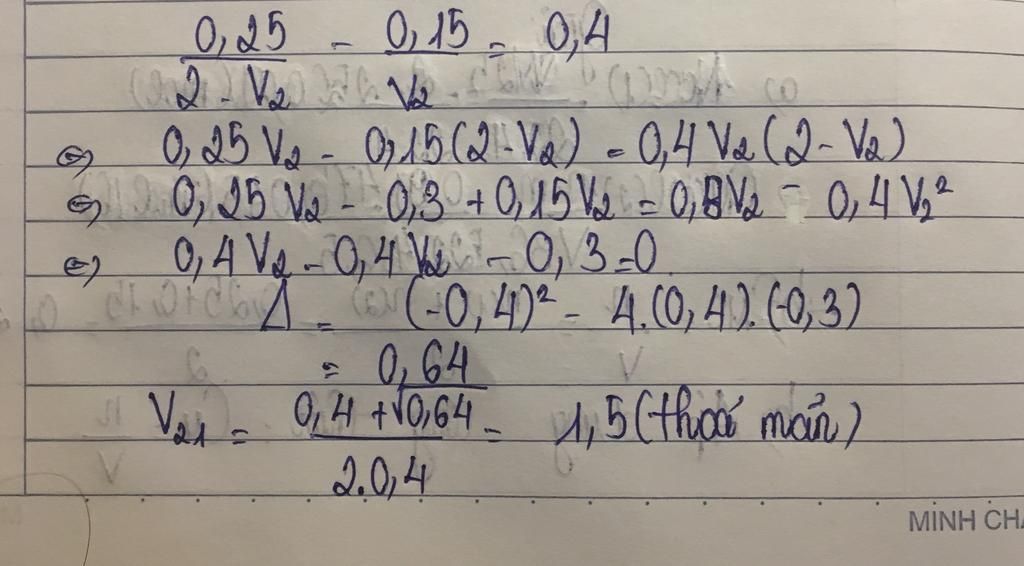 0,25/(2 - V₂) - 0,15/V₂ = 0,4
⇔ 0,25V₂ - 0,15(2-V₂) = 0,4V₂(2-V₂)
⇔ 0,25V₂ - 0,3 + 0,15V₂ = 0,8V₂ - 0,4V₂²
⇔ 0,4V₂ - 0,4V₂ - 0,3=0
Δ = (-0,4)² - 4.(0,4).(-0,3)
= 0,64
V₂₁ = (0,4 + √0,64)/(2.0,4) = 1,5 (thoả mãn)
MINH CHÂ